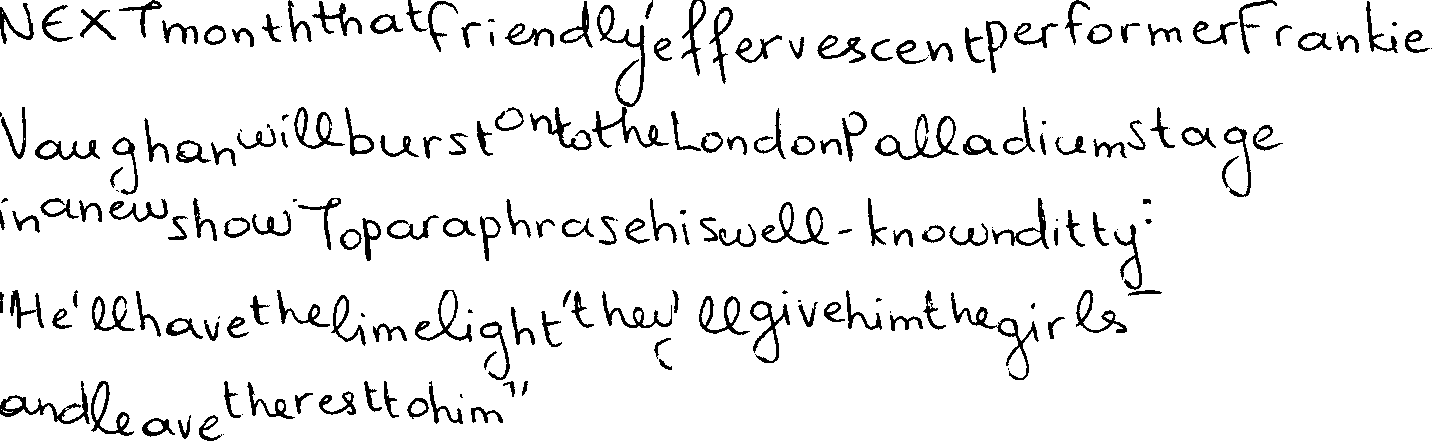 NEXT month that friendly, effervescent performer Frankie
Vaughan will burst on to the London Palladium stage
in a new show. To paraphrase his well-known ditty:
"He'll have the limelight, they'll give him the girls -
and leave the rest to him"